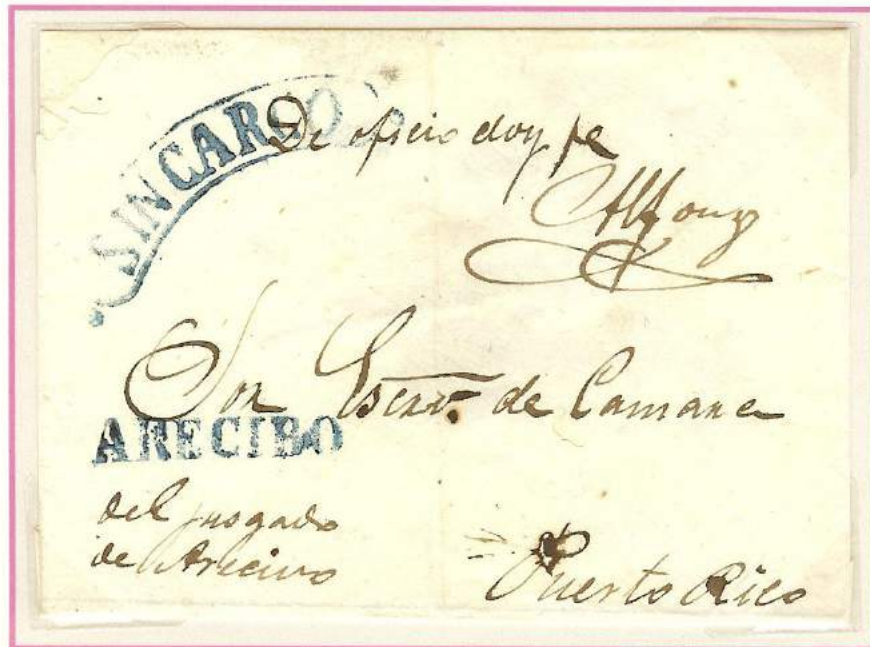 SIN CARGO
De oficio doy fe
Son Escrivo. de Camara
ARECIBO
del jusgado
de Arecivo
Puerto Rico